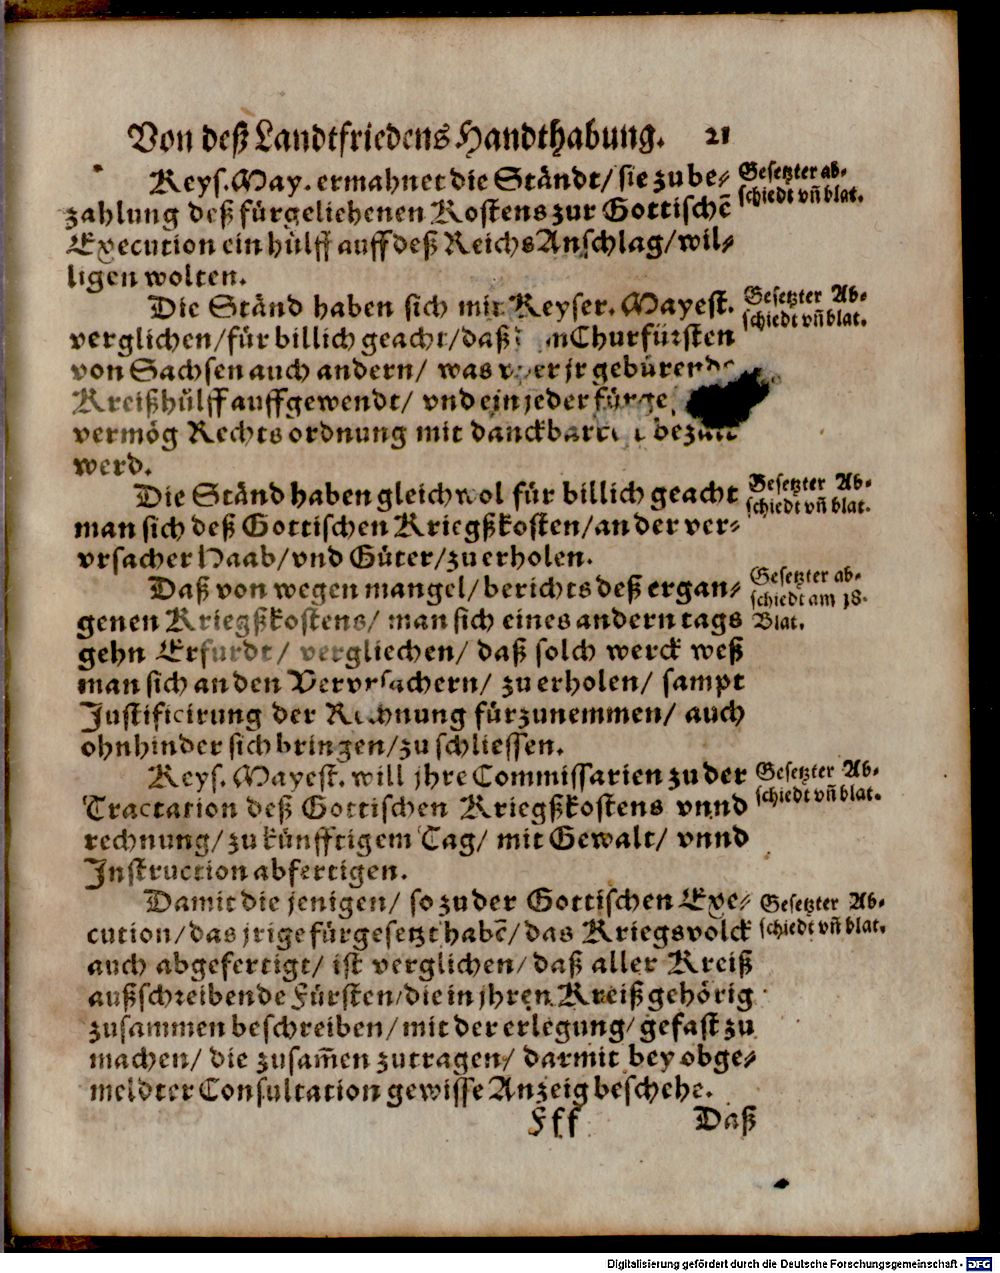 Von deß Landtfriedens Handthabung. 21
Keys. May. ermahnet die Ständt/ sie zu be-
zahlung deß fürgeliehenen Kostens zur Gottischē
Execution ein hülff auff deß Reichs Anschlag/ wil-
ligen wolten.
Gesetzter ab-
schiedt vñ blat.
Die Ständ haben sich mit Keyser. Mayest.
verglichen/ für billich geacht/ daß Churfürsten
von Sachsen auch andern/ was jr gebürende
Kreißhülff auffgewendt/ vnd ein jeder
vermög Rechts ordnung mit
werd.
Gesetzter Ab-
schiedt vñ blat.
Die Ständ haben gleichwol für billich geacht
man sich deß Gottischen Kriegßkosten/ an der ver-
vrsacher Haab/ vnd Güter/ zu erholen.
Gesetzter Ab-
schiedt vñ blat.
Daß von wegen mangel/ berichts deß ergan-
genen Kriegßkostens/ man sich eines andern tags
gehn Erfurdt/ vergliechen/ daß solch werck weß
man sich an den Vervrsachern/ zu erholen/ sampt
Justificirung der Rechnung fürzunemmen/ auch
ohnhinder sich bringen/ zu schliessen.
Gesetzter ab-
schiedt am 18.
Blat.
Keys. Mayest. will jhre Commissarien zu der
Tractation deß Gottischen Kriegßkostens vnnd
rechnung/ zu künfftigem Tag/ mit Gewalt/ vnnd
Instruction abfertigen.
Gesetzter Ab-
schiedt vñ blat.
Damit die jenigen/ so zu der Gottischen Exe-
cution/ das jrige fürgesetzt habē/ das Kriegsvolck
auch abgefertigt/ ist verglichen/ daß aller Kreiß
außschreibende Fürsten/ die in jhren Kreiß gehörig
zusammen beschreiben/ mit der erlegung/ gefast zu
machen/ die zusam̃en zutragen/ darmit bey obge-
meldter Consultation gewisse Anzeig beschehe.
Gesetzter Ab-
schiedt vñ blat.
Fff Daß
Digitalisierung gefördert durch die Deutsche Forschungsgemeinschaft - DFG